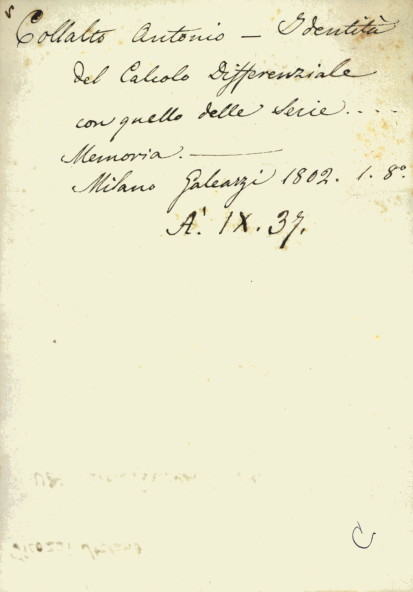 Collalto Antonio — Identità
del Calcolo Differenziale
con quello delle Serie....
Memoria. —
Milano Galeazzi 1802. 1. 8°.
A'. IX. 37.
C